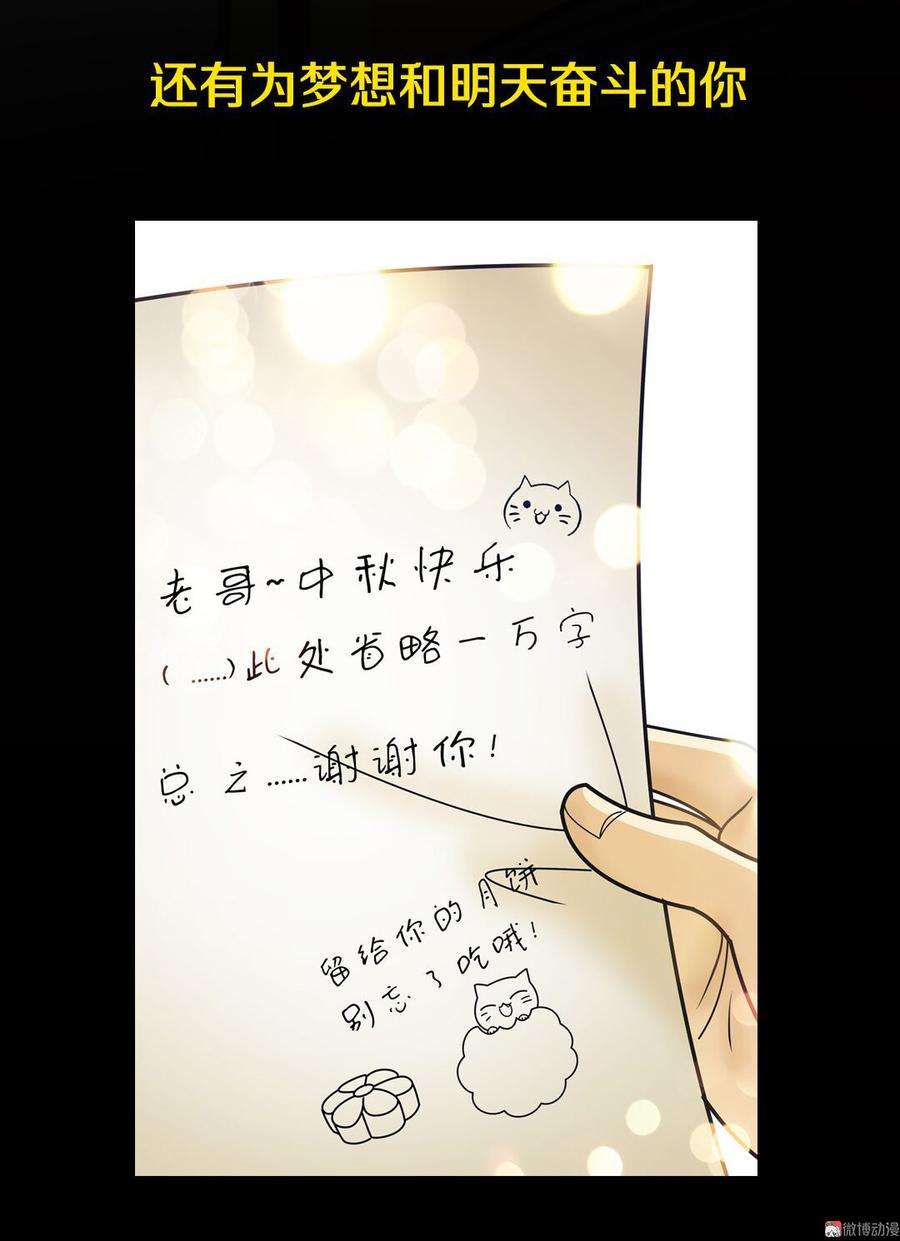 还有为梦想和明天奋斗的你
老哥~中秋快乐
(……)此处省略一万字
总之……谢谢你!
留给你的月饼
别忘了吃哦!
微博动漫